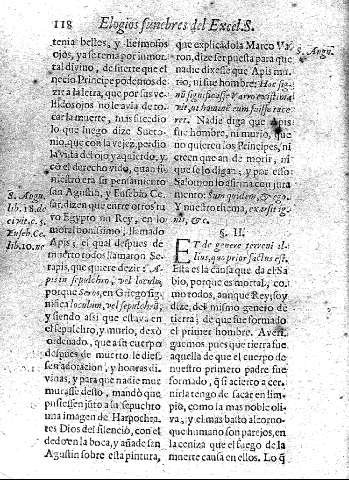 118 Elogios funebres del Excel. S.
tenia bellos, y hermosos
ojos, ya se tenia por inmor
tal divino, de suerte que el
necio Principe podemos de
zir a la letra, que por sus ve
llidos ojos no le avia de to-
car la muerte, mas sucedio
lo que luego dize Sueto-
nio, que con la vejez, perdio
la vista del ojo yzquierdo, y
có el derecho vido, quan fu
nera era su pensamiento
san Agustin, y Eusebio Ce
sar, dizen que entre otros tu
vo Egypto un Rey, en lo
moral bonissimo, llamado
Apis, el qual despues de
muerto todos llamaron Se-
rapis, que quiere dezir: A-
pis in sepulchro, vel loculo,
porque Soros, en Griego sig-
nifica loculum, vel sepulchrū;
y siendo assi que estava en
el sepulchro, y murio, dexò
ordenado, que a su cuerpo
despues de muerto le dies-
sen adoracion, y honras di-
vinas, y para que nadie mur
murasse desto, mandò que
pusiessen jūto a su sepulchro
una imagen de Harpochra-
tes Dios del silenció, con el
dedo en la boca, y añade san
Agustin sobre esta pintura,
S. Augu.
lib. 18. de
civit. c. 5.
Euseb. Ce.
lib. 10.
que explicádola Marco Va-
ron, dize ser puesta para que
nadie dixesse que Apis mu-
rio, ni fue hombre; Hoc sig-
num significasse Varro existimat
vit, ut hominē eum fuisse tace-
ret. Nadie diga que Apis
fue hombre, ni murio, que
no quieren los Principes, ni
creen que an de morir, ni
que se lo digan; y por esso
Salomon lo afirma con jura
mento: Sum quidem, & ego.
Y nuestro thema, exarsit ig-
nis, &c.
S. Augu.
§. II.
ET de genere terreni il-
lius, qui prior factus est.
Esta es la causa que da el Sa-
bio, porque es mortal, co-
mo todos, aunque Rey, soy
dize, del mismo genero de
tierra; de que fue formado
el primer hombre. Averi-
guemos pues que tierra fue
aquella de que el cuerpo de
nuestro primero padre fue
formado, q̃ si acierto a cer-
nirla tengo de sacar en lim-
pio, como la mas noble oli-
va, y el mas basto alcorno-
que humano son parejos, en
la ceniza que el fuego de la
muerte causa en ellos. Lo q̃